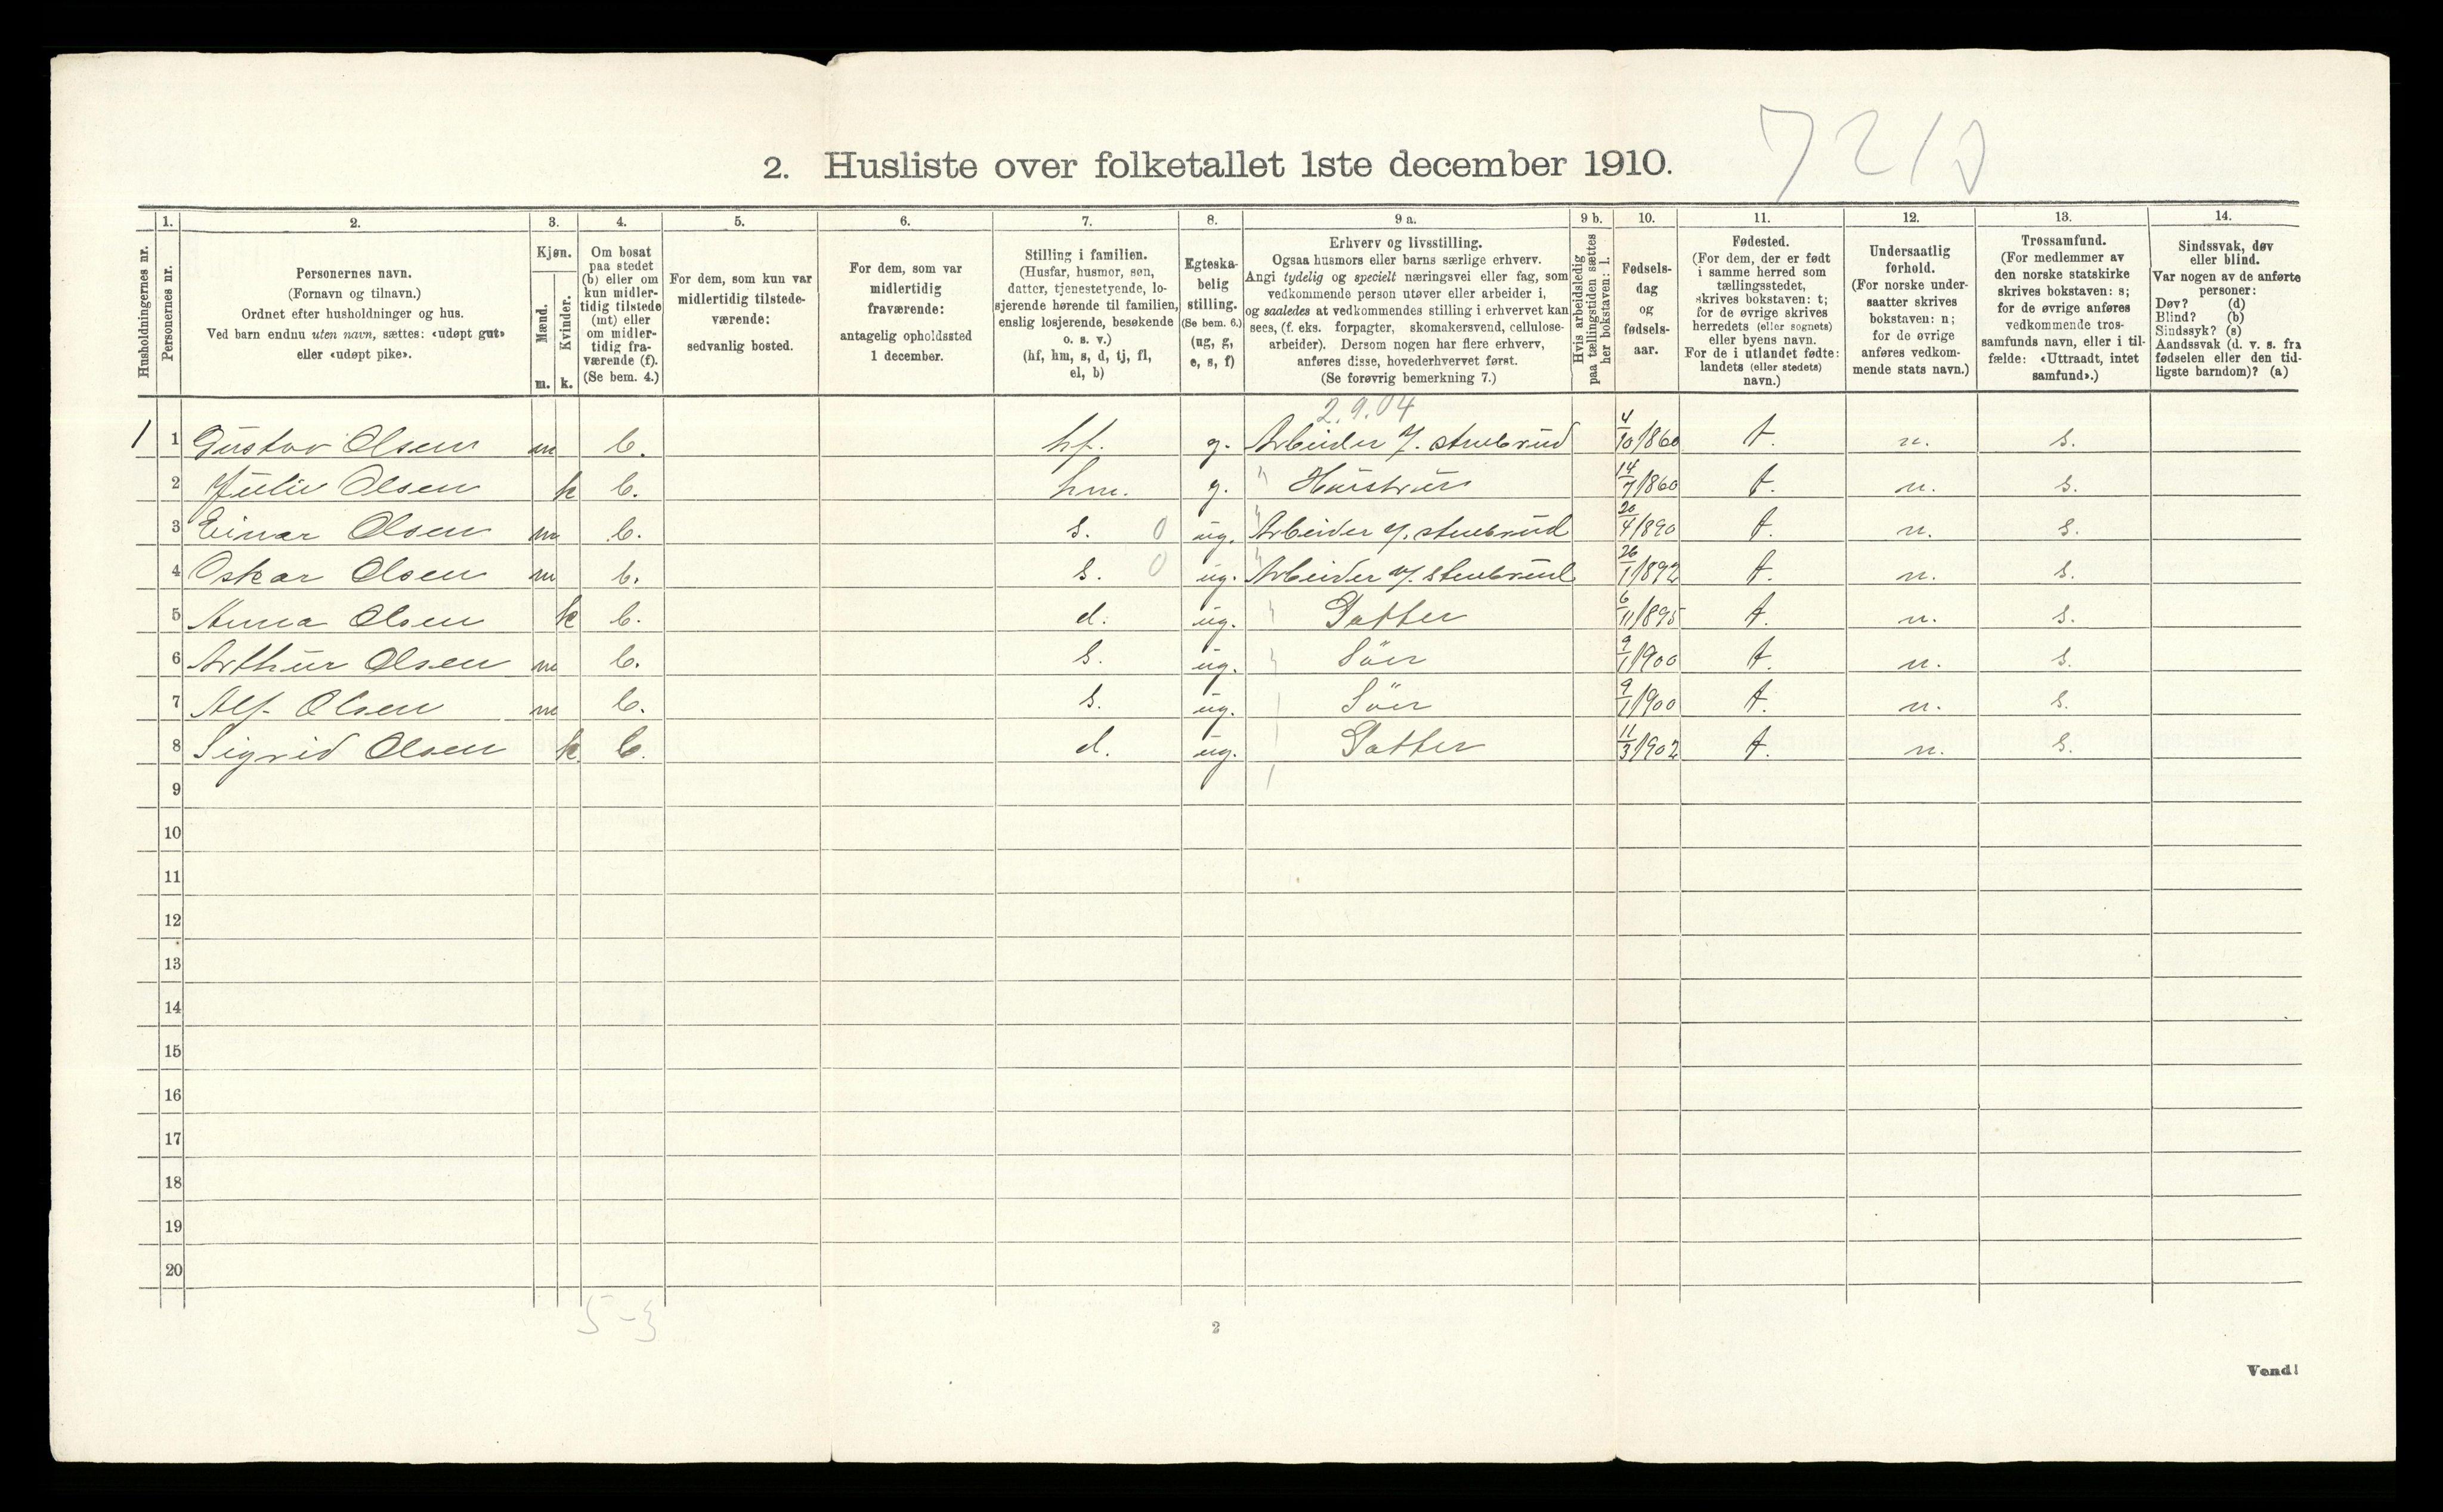 7210
2. Husliste over folketallet 1ste december 1910.
Husholdningernes nr.
1.
Personernes nr.
2.
Personernes navn.
(Fornavn og tilnavn.)
Ordnet efter husholdninger og hus.
Ved barn endnu uten navn, sættes: «udøpt gut»
eller «udøpt pike».
3.
Kjøn.
Mænd.
Kvinder.
m. k.
4.
Om bosat
paa stedet
(b) eller om
kun midler-
tidig tilstede
(mt) eller
om midler-
tidig fra-
værende (f).
(Se bem. 4.)
5.
For dem, som kun var
midlertidig tilstede-
værende:
sedvanlig bosted.
6.
For dem, som var
midlertidig
fraværende:
antagelig opholdssted
1 december.
7.
Stilling i familien.
(Husfar, husmor, søn,
datter, tjenestetyende, lo-
sjerende hørende til familien,
enslig losjerende, besøkende
o. s. v.)
(hf, hm, s, d, tj, fl,
el, b)
8.
Egteska-
belig
stilling.
(Se bem. 6.)
(ug, g,
e, s, f)
9 a.
Erhverv og livsstilling.
Ogsaa husmors eller barns særlige erhverv.
Angi tydelig og specielt næringsvei eller fag, som
vedkommende person utøver eller arbeider i,
og saaledes at vedkommendes stilling i erhvervet kan
sees, (f. eks. forpagter, skomakersvend, cellulose-
arbeider). Dersom nogen har flere erhverv,
anføres disse, hovederhvervet først.
(Se forøvrig bemerkning 7.)
9 b.
Hvis arbeidsledig
paa tællingstiden sættes
her bokstaven: l.
10.
Fødsels-
dag
og
fødsels-
aar.
11.
Fødested.
(For dem, der er født
i samme herred som
tællingsstedet,
skrives bokstaven: t;
for de øvrige skrives
herredets (eller sognets)
eller byens navn.
For de i utlandet fødte:
landets (eller stedets)
navn.)
12.
Undersaatlig
forhold.
(For norske under-
saatter skrives
bokstaven: n;
for de øvrige
anføres vedkom-
mende stats navn.)
13.
Trossamfund.
(For medlemmer av
den norske statskirke
skrives bokstaven: s;
for de øvrige anføres
vedkommende tros-
samfunds navn, eller i til-
fælde: «Uttraadt, intet
samfund».)
14.
Sindssvak, døv
eller blind.
Var nogen av de anførte
personer:
Døv? (d)
Blind? (b)
Sindssyk? (s)
Aandssvak (d. v. s. fra
fødselen eller den tid-
ligste barndom)? (a)
2.9.04
1 1 Gustav Olsen m b. hf. g. Arbeider i. stenbrud 4/10 1860 t. n. s.
2 Julie Olsen k b. hm. g. " Hustrue 14/7 1860 t. n. s.
3 Einar Olsen m b. s. 0 ug. Arbeider i. stenbrud 20/4 1890 t. n. s.
4 Oskar Olsen m b. s. 0 ug. Arbeider i. stenbrud 26/1 1892 t. n. s.
5 Anna Olsen k b. d. ug. Datter 6/11 1895 t. n. s.
6 Arthur Olsen m b. s. ug. Sön 9/1 1900 t. n. s.
7 Alf Olsen m b. s. ug. Sön 9/1 1900 t. n. s.
8 Sigrid Olsen k b. d. ug. Datter 11/3 1902 t. n. s.
9
10
11
12
13
14
15
16
17
18
19
20
5-3
2
Vend!